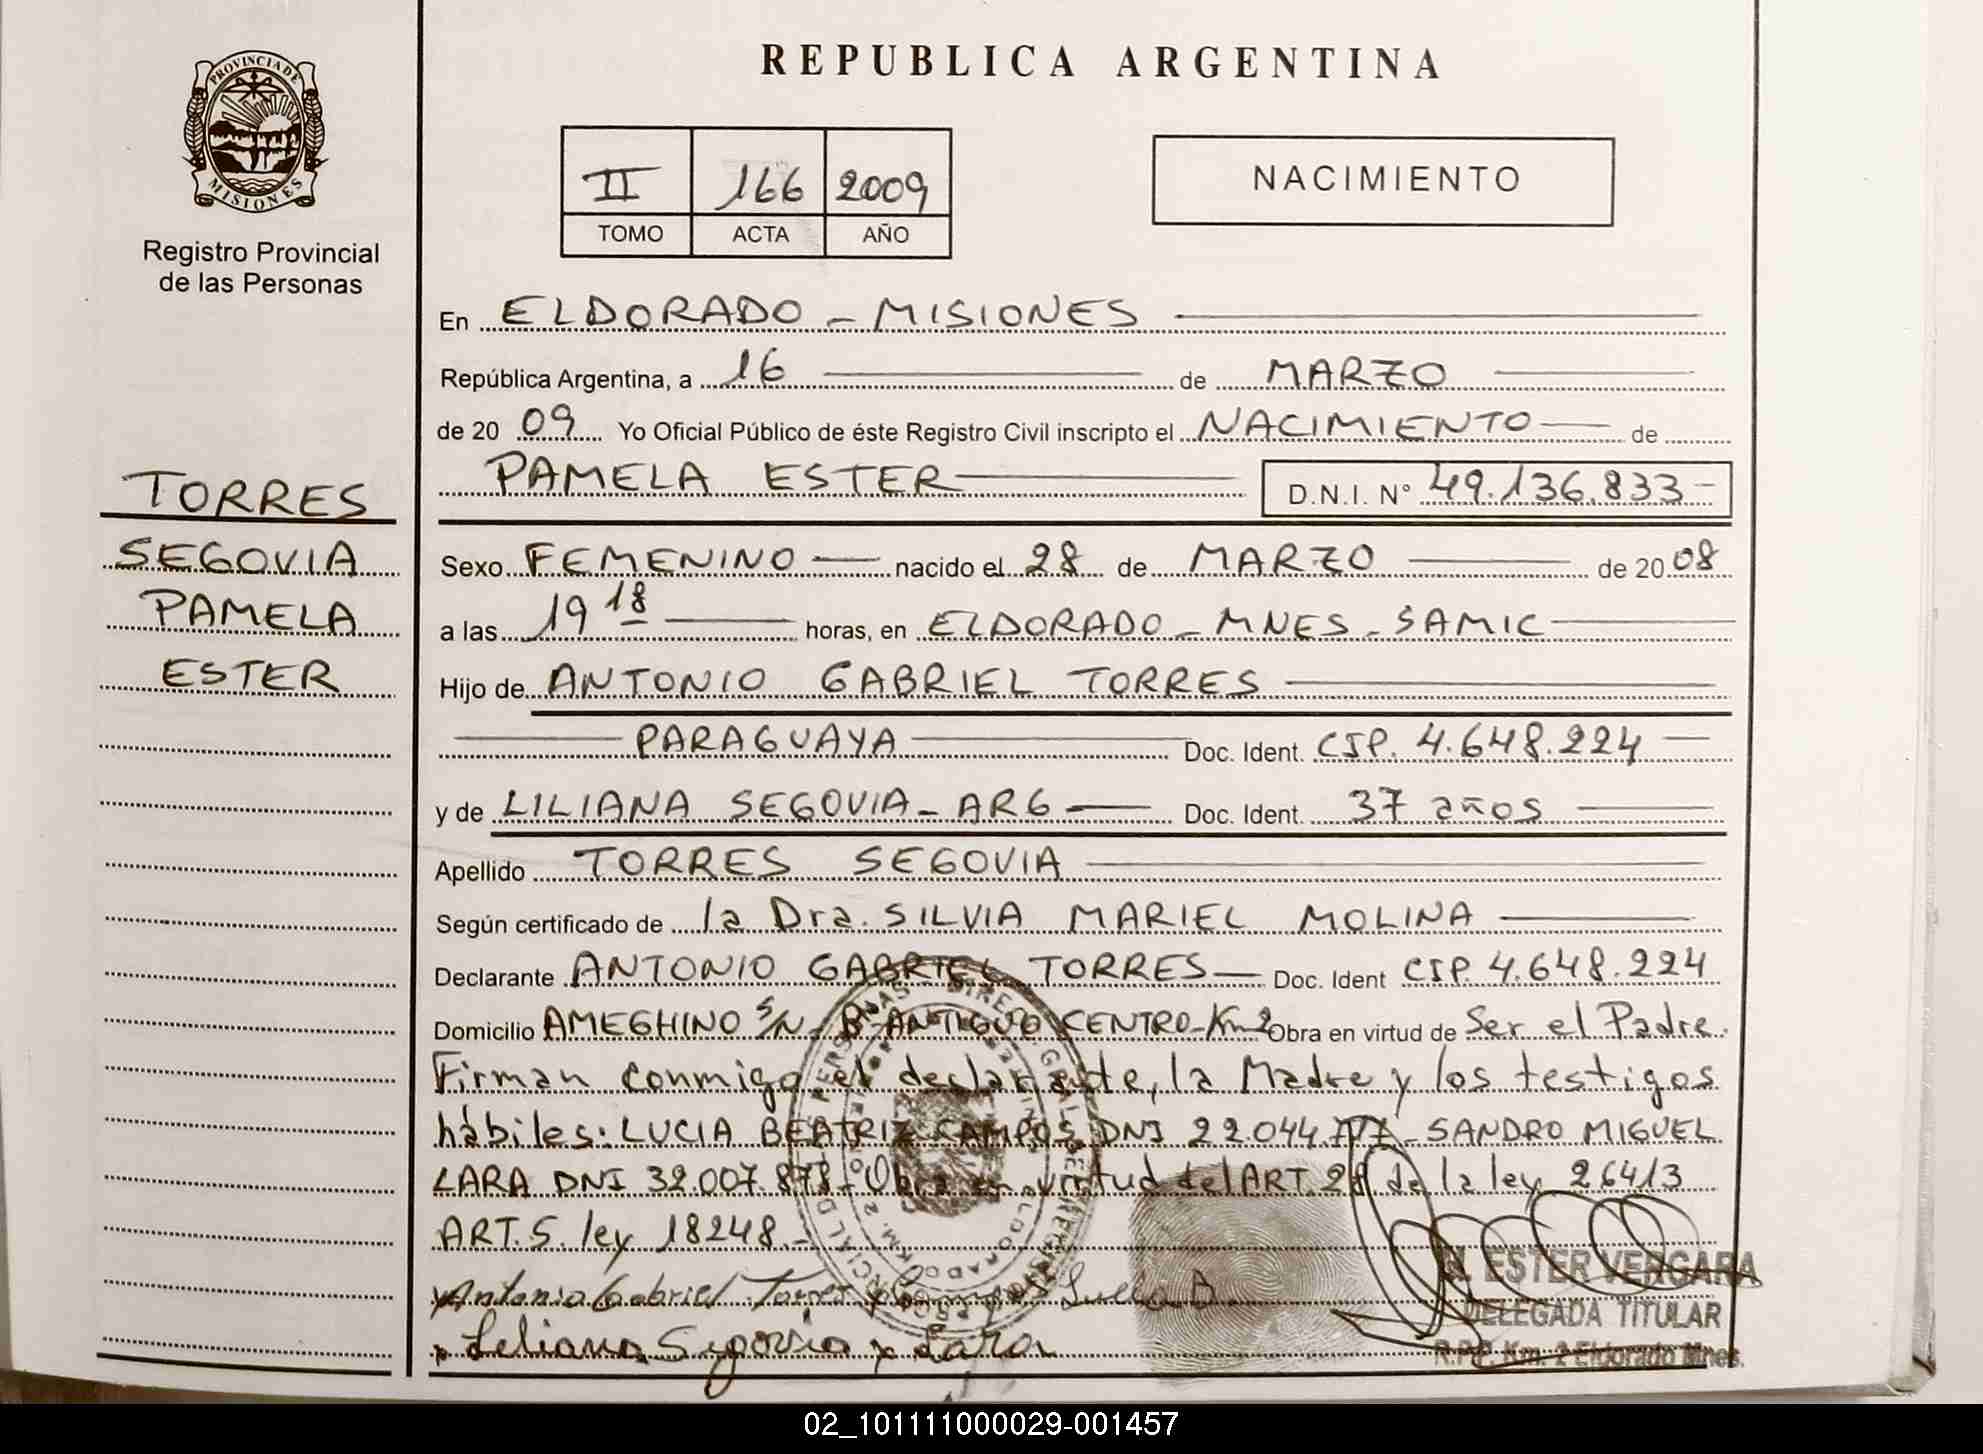 REPUBLICA ARGENTINA
PROVINCIA DE MISIONES
Registro Provincial
de las Personas
II 166 2009
TOMO ACTA AÑO
NACIMIENTO
TORRES
SEGOVIA
PAMELA
ESTER
En ELDORADO - MISIONES
República Argentina, a 16 de MARZO
de 20 09 Yo Oficial Público de éste Registro Civil inscripto el NACIMIENTO de
PAMELA ESTER D.N.I. N° 49.136.833
Sexo FEMENINO nacido el 28 de MARZO de 20 08
a las 19 18 horas, en ELDORADO - MNES - SAMIC
Hijo de ANTONIO GABRIEL TORRES
PARAGUAYA Doc. Ident. CIP. 4.648.224
y de LILIANA SEGOVIA - ARG Doc. Ident. 37 años
Apellido TORRES SEGOVIA
Según certificado de la Dra. SILVIA MARIEL MOLINA
Declarante ANTONIO GABRIEL TORRES Doc. Ident CIP. 4.648.224
Domicilio AMEGHINO S/N - Bº ANTIGUO CENTRO - Km 2 Obra en virtud de Ser el Padre.
Firman conmigo el declarante, la Madre y los testigos
hábiles: LUCIA BEATRIZ CAMPOS DNI 22.044. - SANDRO MIGUEL
LARA DNI 32.007.878 - Obra en virtud del ART. 28 de la ley 26413
ART. 5. ley 18248.-
x Antonio Gabriel Torres x Campos Lucia B.
x Liliana Segovia x Lara
ESTER VERGARA
DELEGADA TITULAR
R.P.P. Km. 2 Eldorado Mnes.
02_101111000029-001457